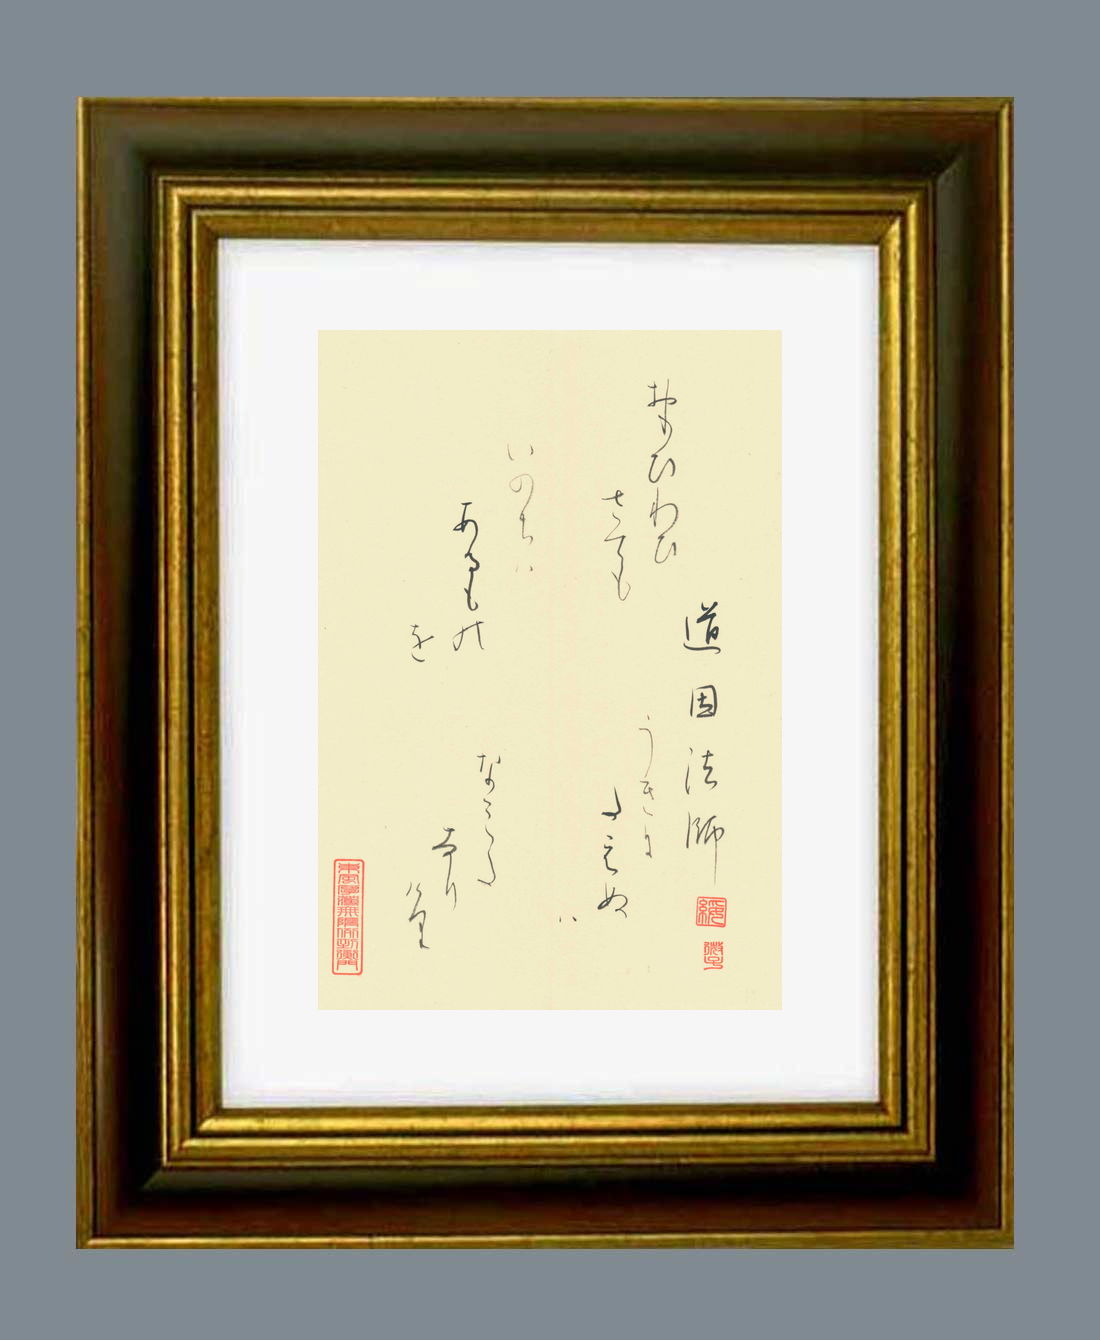 道因法師
おもひわひ
さても
いのちハ
あるもの
を
うきに
たえぬ
ハ
なみた
なり
けり